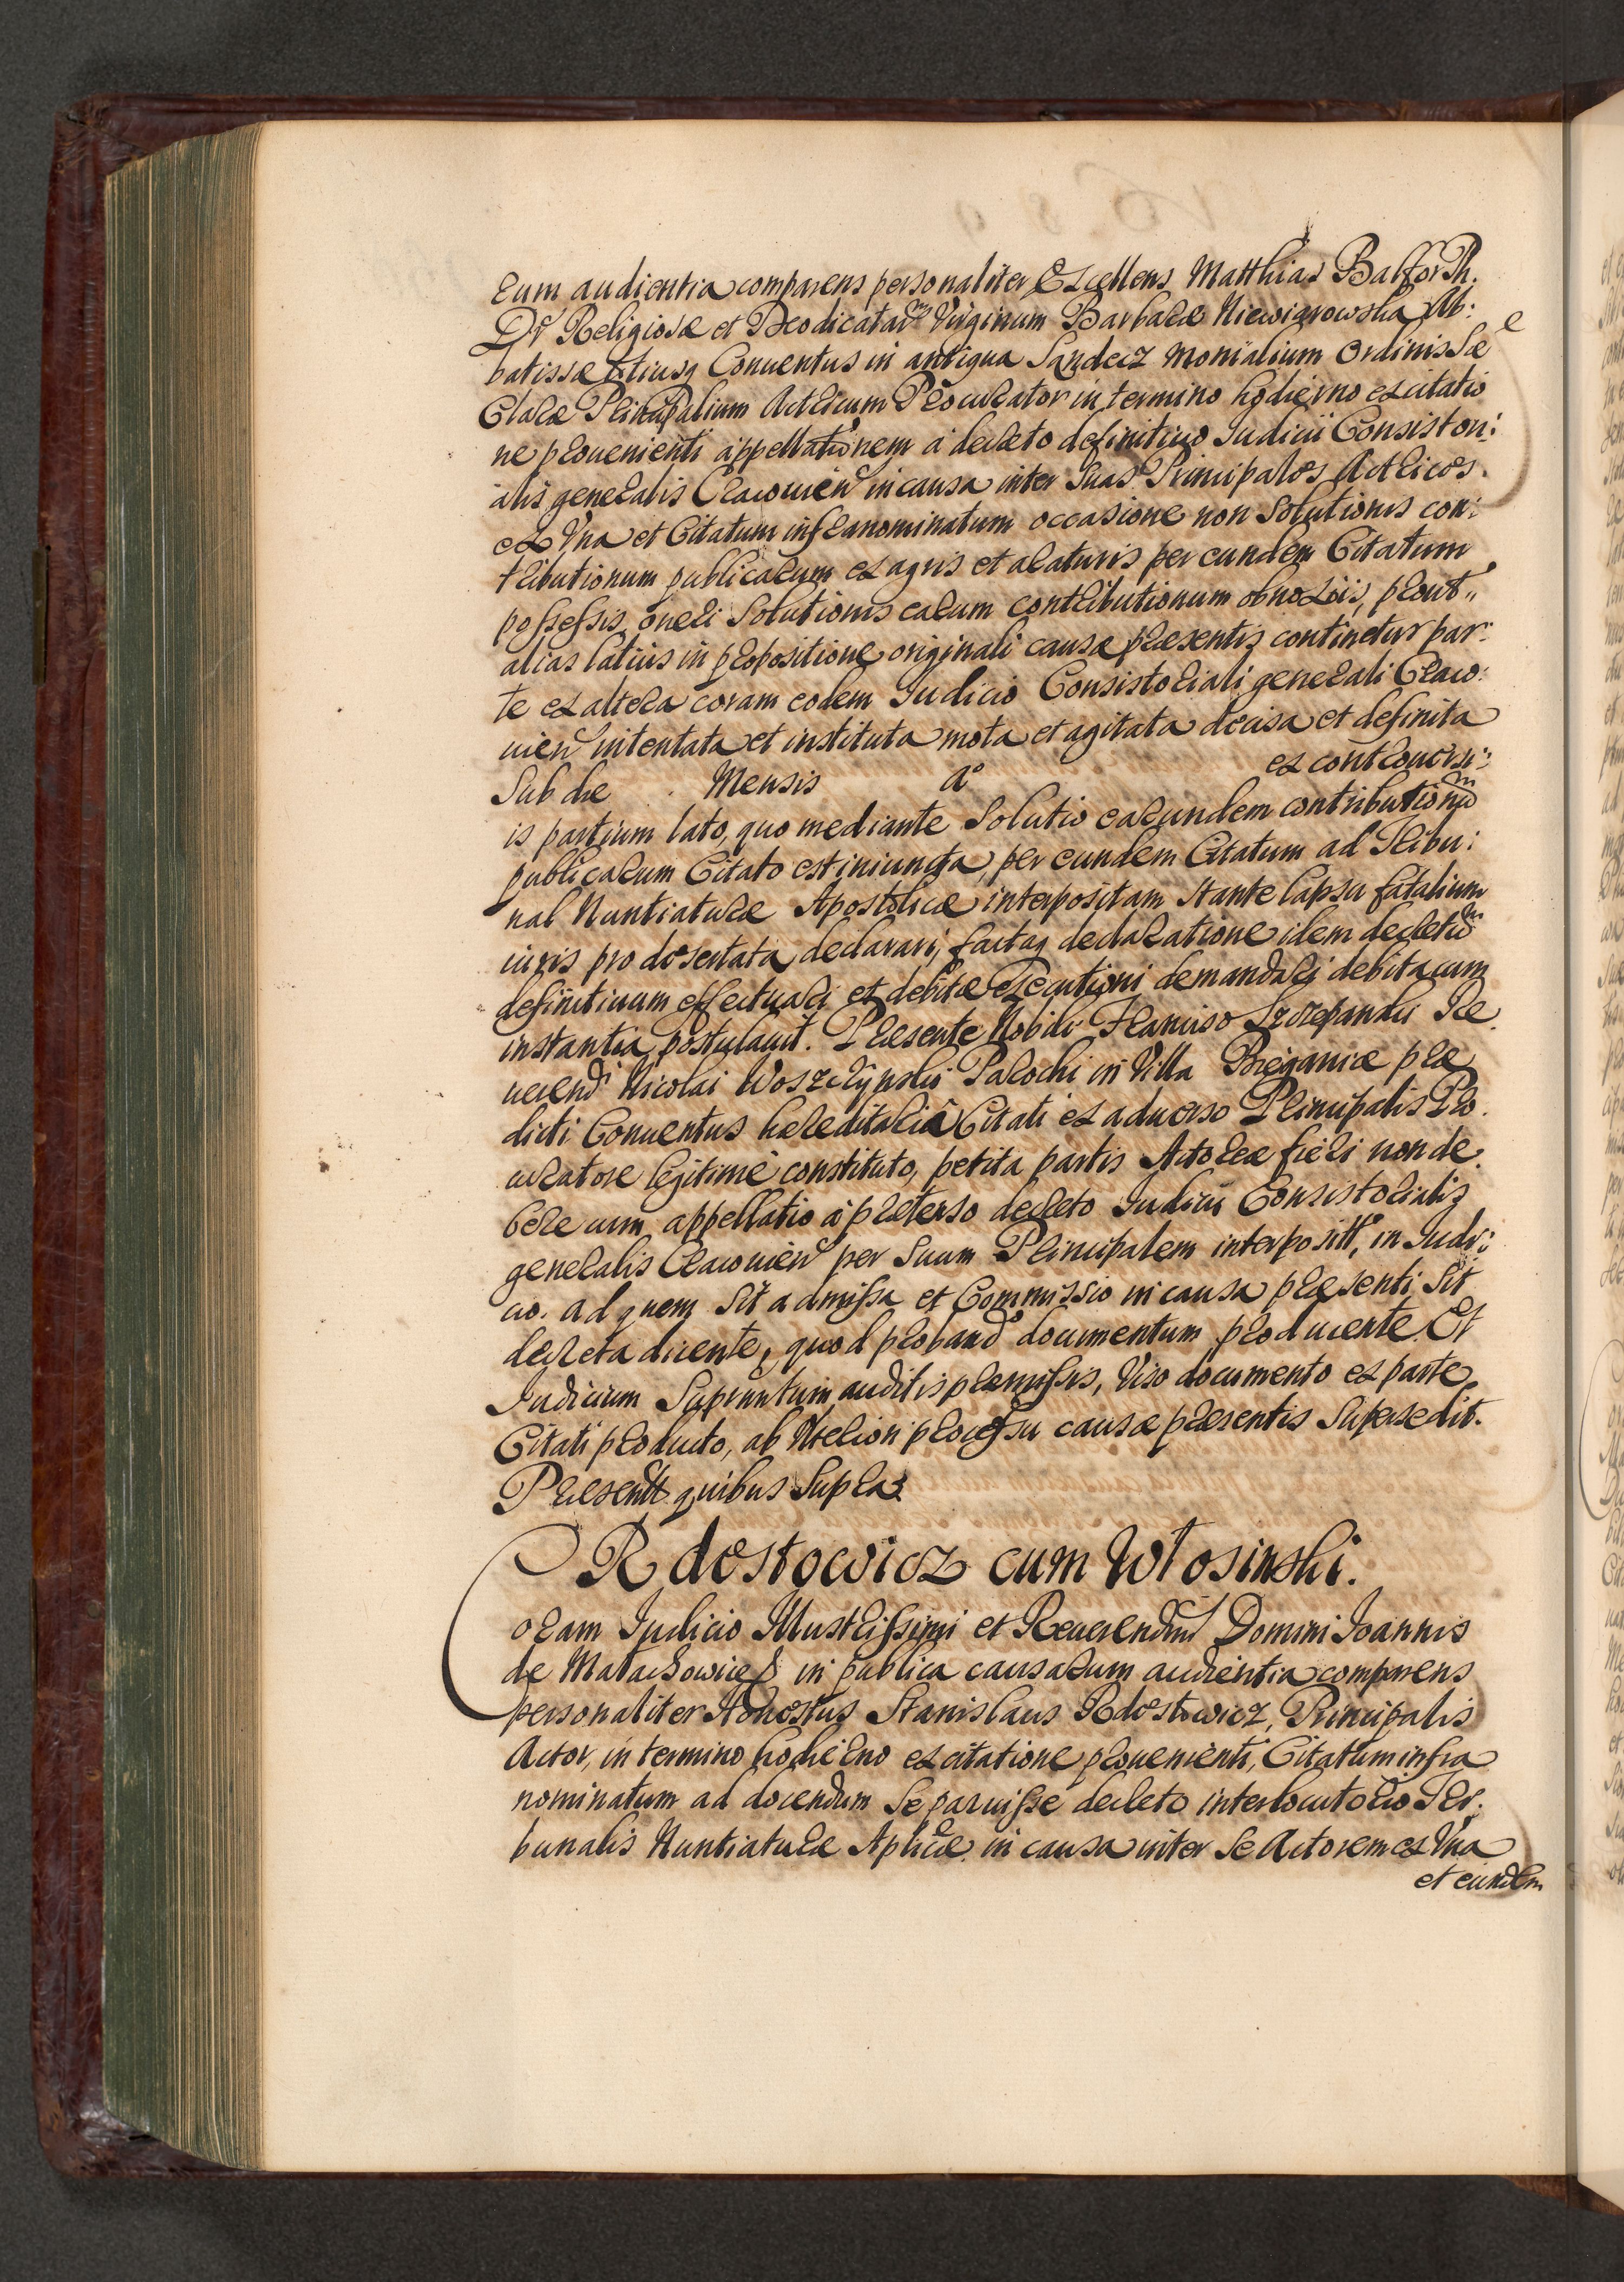 rum audientia comparens personaliter Excellens Matthias Balfor Ph.
Dr Religiosæ et Deodicatarm Virginum Barbaræ Niewiarowska Ab:
batissæ totiusq Conuentus in antiqua Sandecz monialium Ordinis Sæ
Claræ Principalium Actricum Procurator in termino hodierno ex citatio
ne prouenienti appellationem à decreto definitiuo Iudicii Consistori:
alis generalis Cracouien in causa inter Suas Principales Actrices
ex Vna et Citatum infranominatum occasione non Solutionis con:
tributionum publicarum ex agris et araturis per eundem Citatum
possessis, oneri Solutionis earum contributionum obnoxiis, prout
alias latius in propositione originali causæ præsentis continetur par:
te ex altera coram eodem Iudicio Consistoriali generali Craco:
uien intentata et instituta mota et agitata decisa et definita
Sub die Mensis Ao ex controuersi:
is partium lato, quo mediante Solutio earundem contributionum
publicarum Citato est iniuncta, per eundem Citatum ad Tribu:
nal Nuntiaturæ Apostolicæ interpositam stante lapsu fatalium
iuris pro deserta declarari, factaq declaratione idem decretum
definitiuum effectuari et debitæ executioni demandari debita cum
instantia postulauit. Præsente Nobili Francisco Szczepanski Re
uerend Nicolai Woszczynski Parochi in Villa Biegonice præ
dicti Conuentus hæreditaria Citati ex aduerso Principalis Pro
curatore legitimè constituto, petita partis Actoreæ fieri non de
bere cum appellatio à prætenso decreto Iudicii Consistorialis
generalis Cracouien per Suum Principalem interposita, in Iudi:
cio. ad quem Sit admissa et Commissio in causa præsenti Sit
decreta dicente, quod proband documentum producente. Et
Iudicium Supranntum auditis præmissis, Viso documento ex parte
Citati producto, ab Vlteriori processu causæ præsentis Supersedit.
Præsentt quibus Supra
Rdestowicz cum Włosinski.
Coram Iudicio Illustrissimi et Reuerendmi Domini Ioannis
de Malachowice in publica causarum audientia comparens
personaliter Honestus Stanislaus Rdestowicz, Principalis
Actor, in termino hodierno ex citatione prouenienti, Citatum infra
nominatum ad docendum Se paruisse decreto interlocutorio Tri:
bunalis Nuntiaturæ Aplicæ in causa inter Se Actorem ex Vna
et eundem